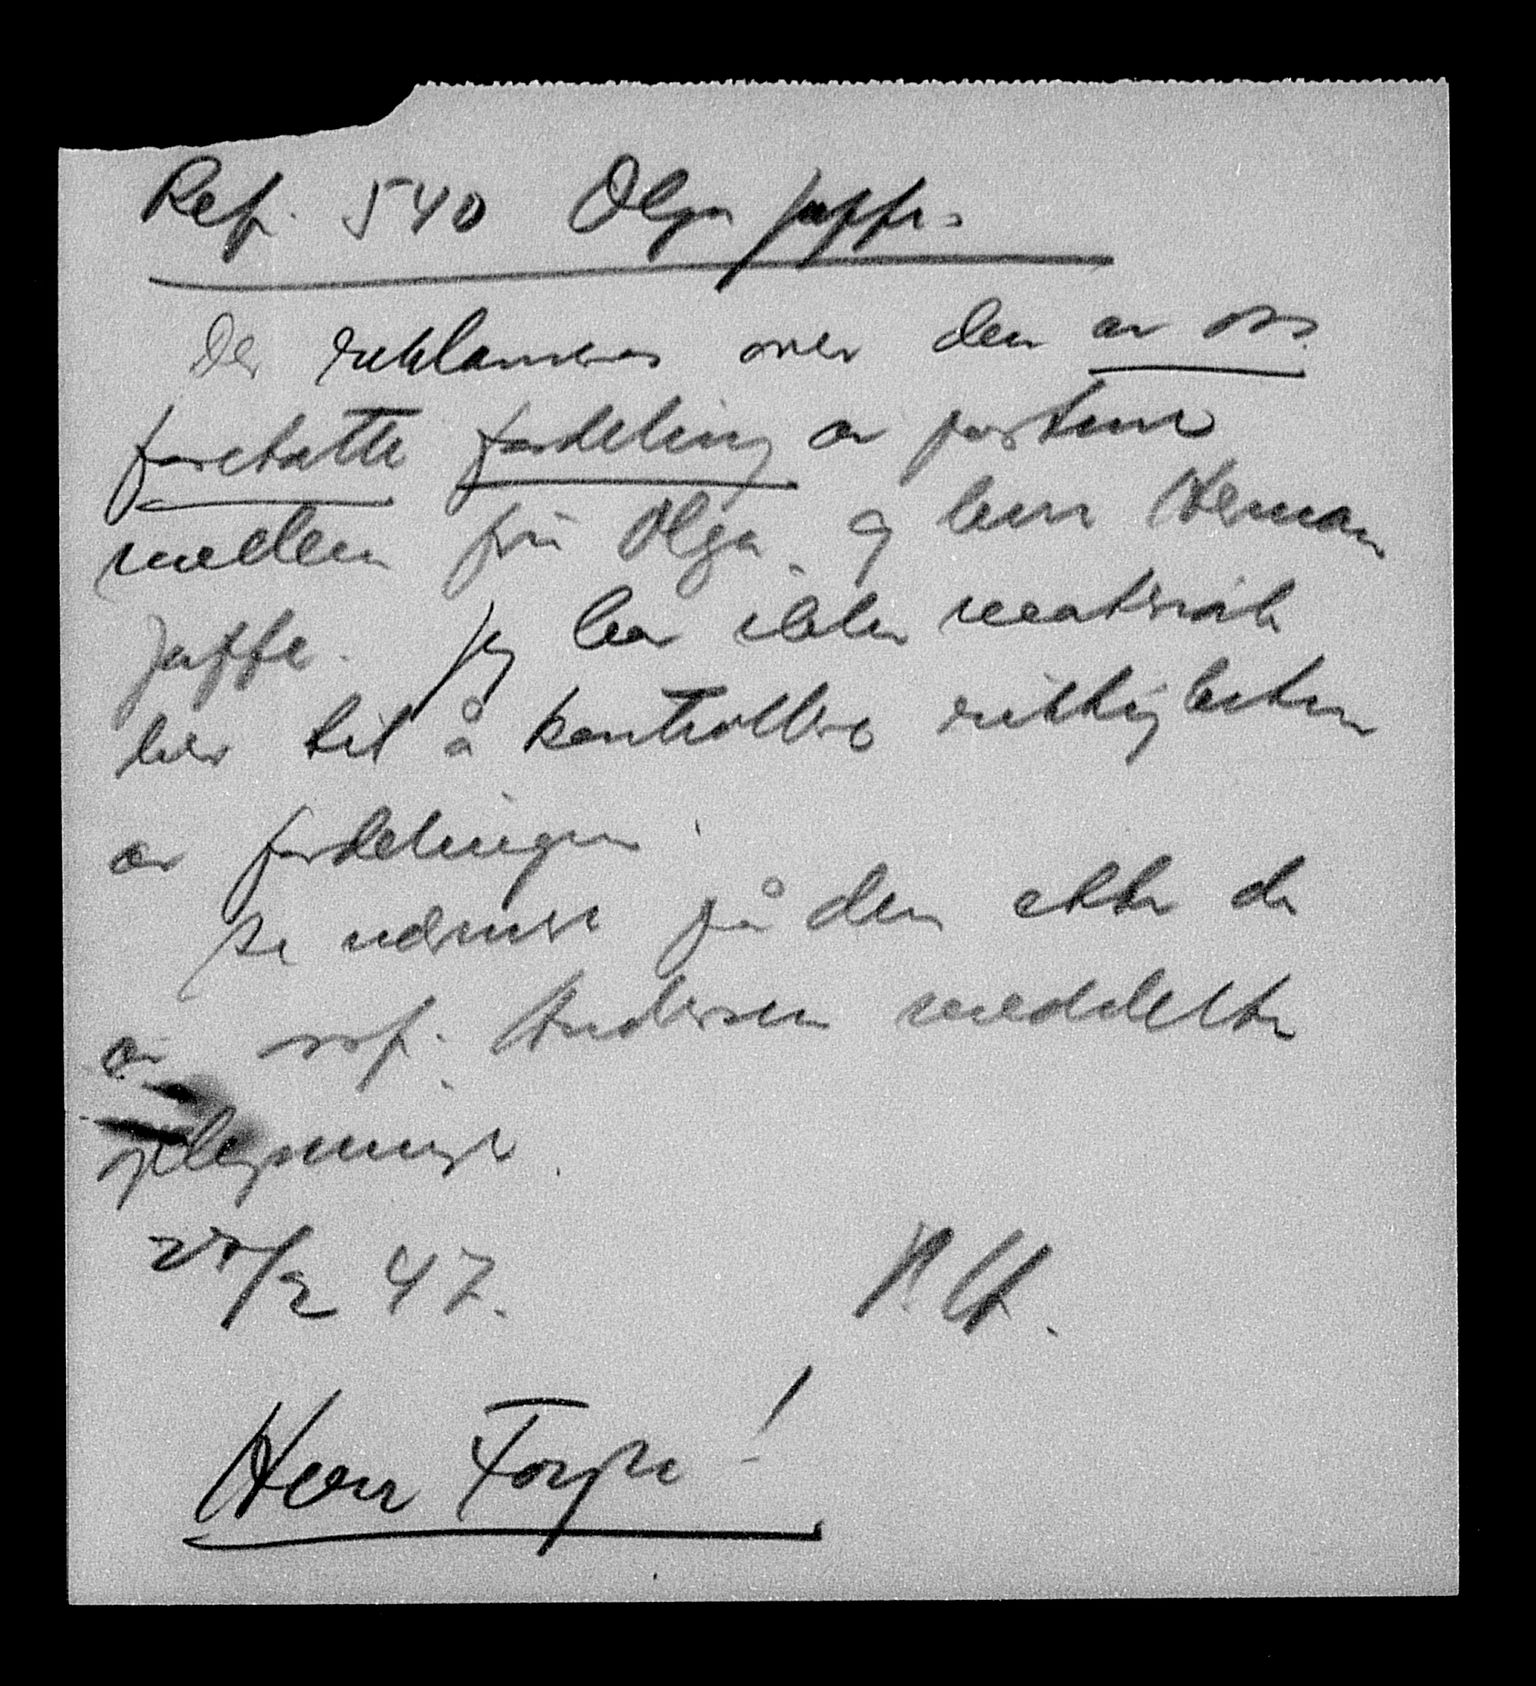 Ref. 540 Olga Jaffe.
Der reklameres over den av oss
foretatte fordeling av postene
mellem fru Olga og herr Herman
Jaffe. Jeg har ikke materiale
her til å kontrollere riktigheten
av fordelingen.
Se nærmere på den etter de
av Andersen meddelte
oplysninger.
/2 47.
Herr